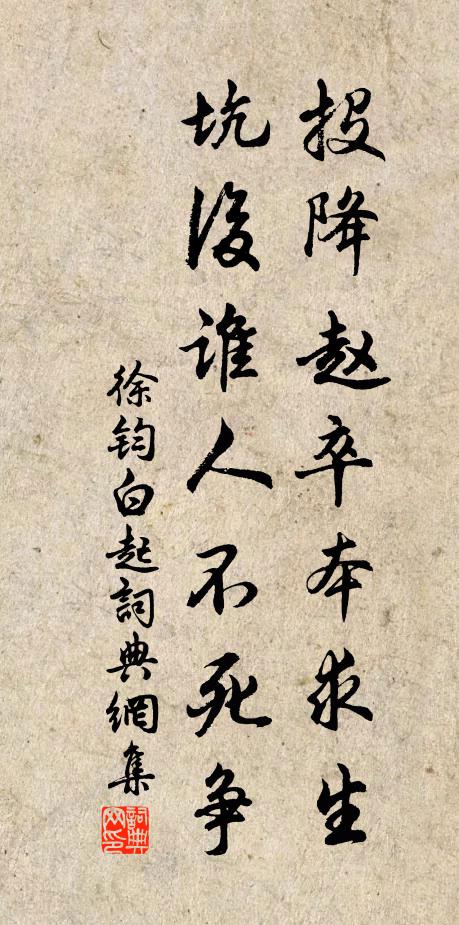 投降赵卒本求生
坑後谁人不死争
徐钧白起詞典網集
詞典网印